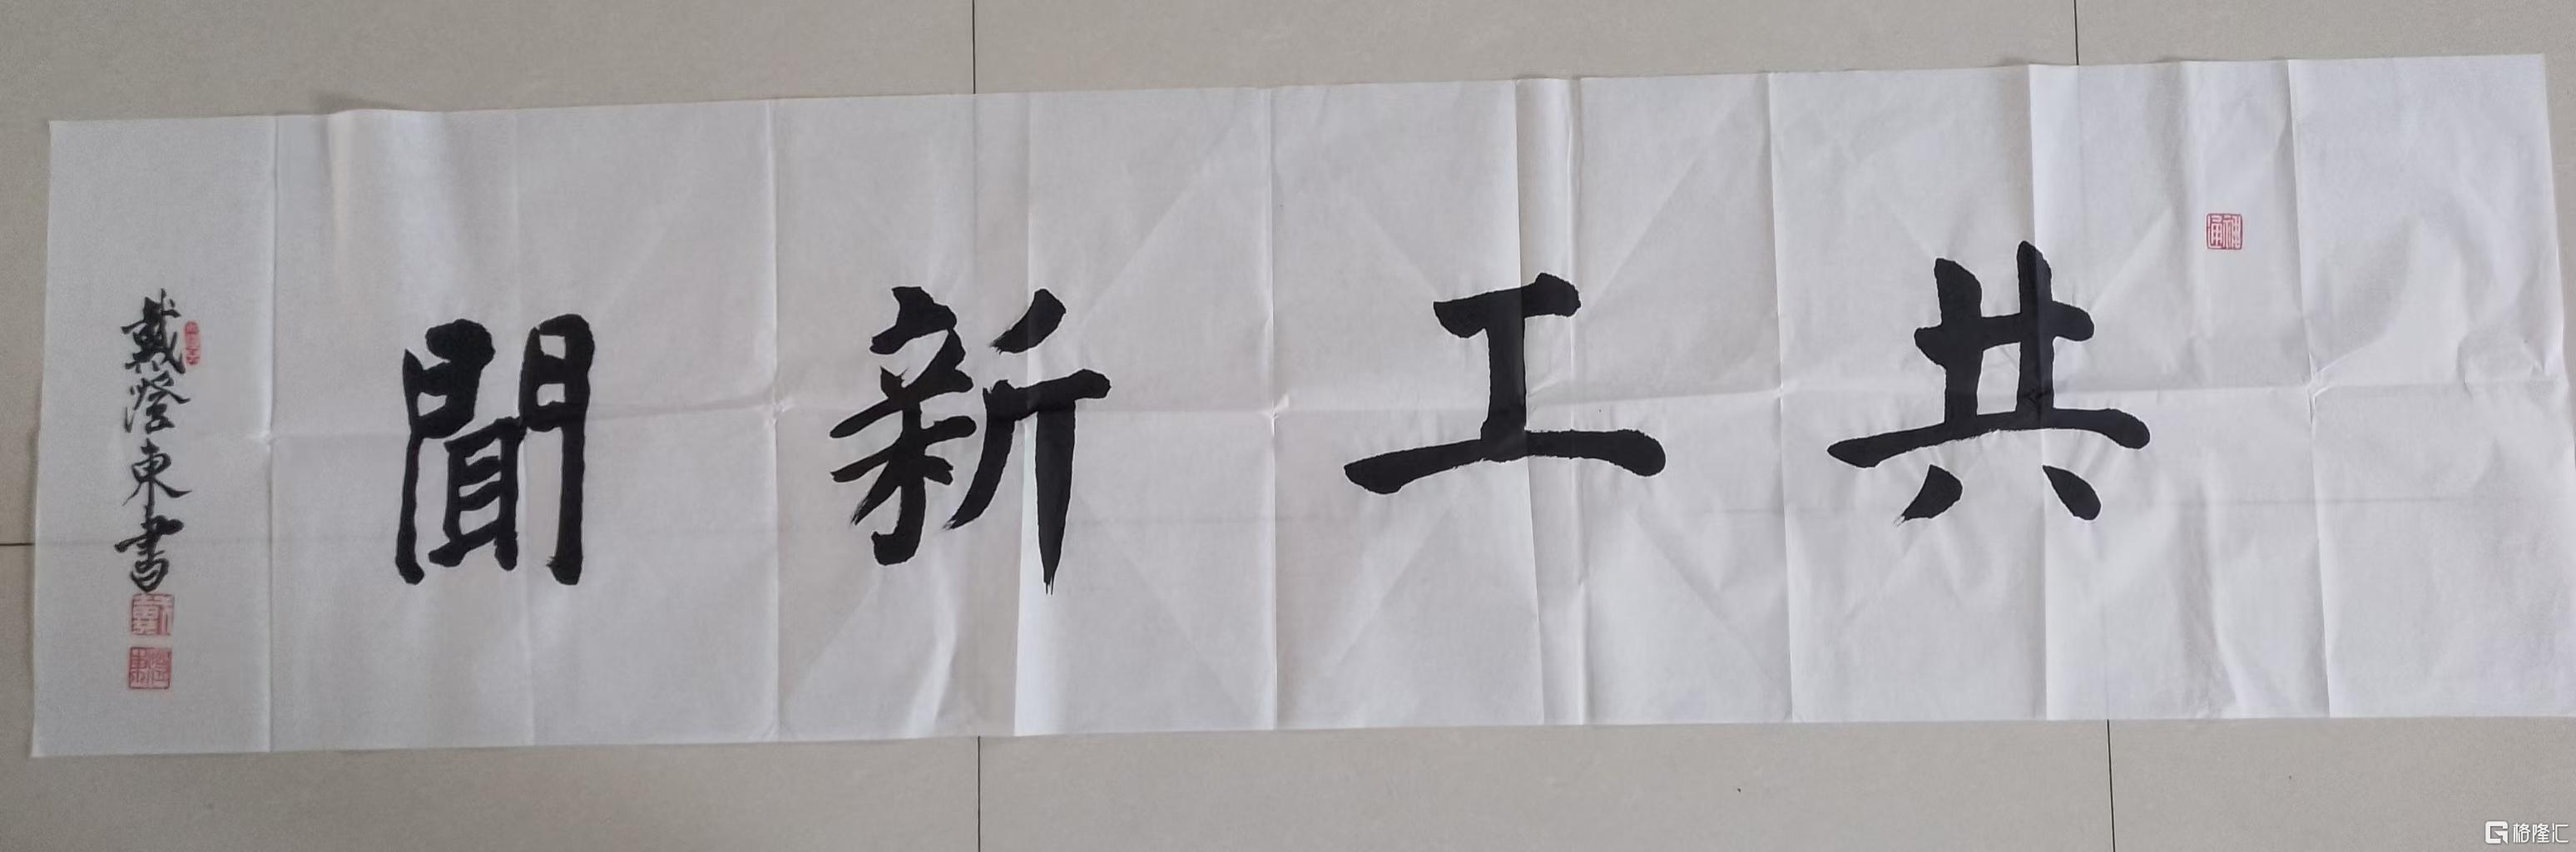 共工新聞
戴澄東書
格隆汇